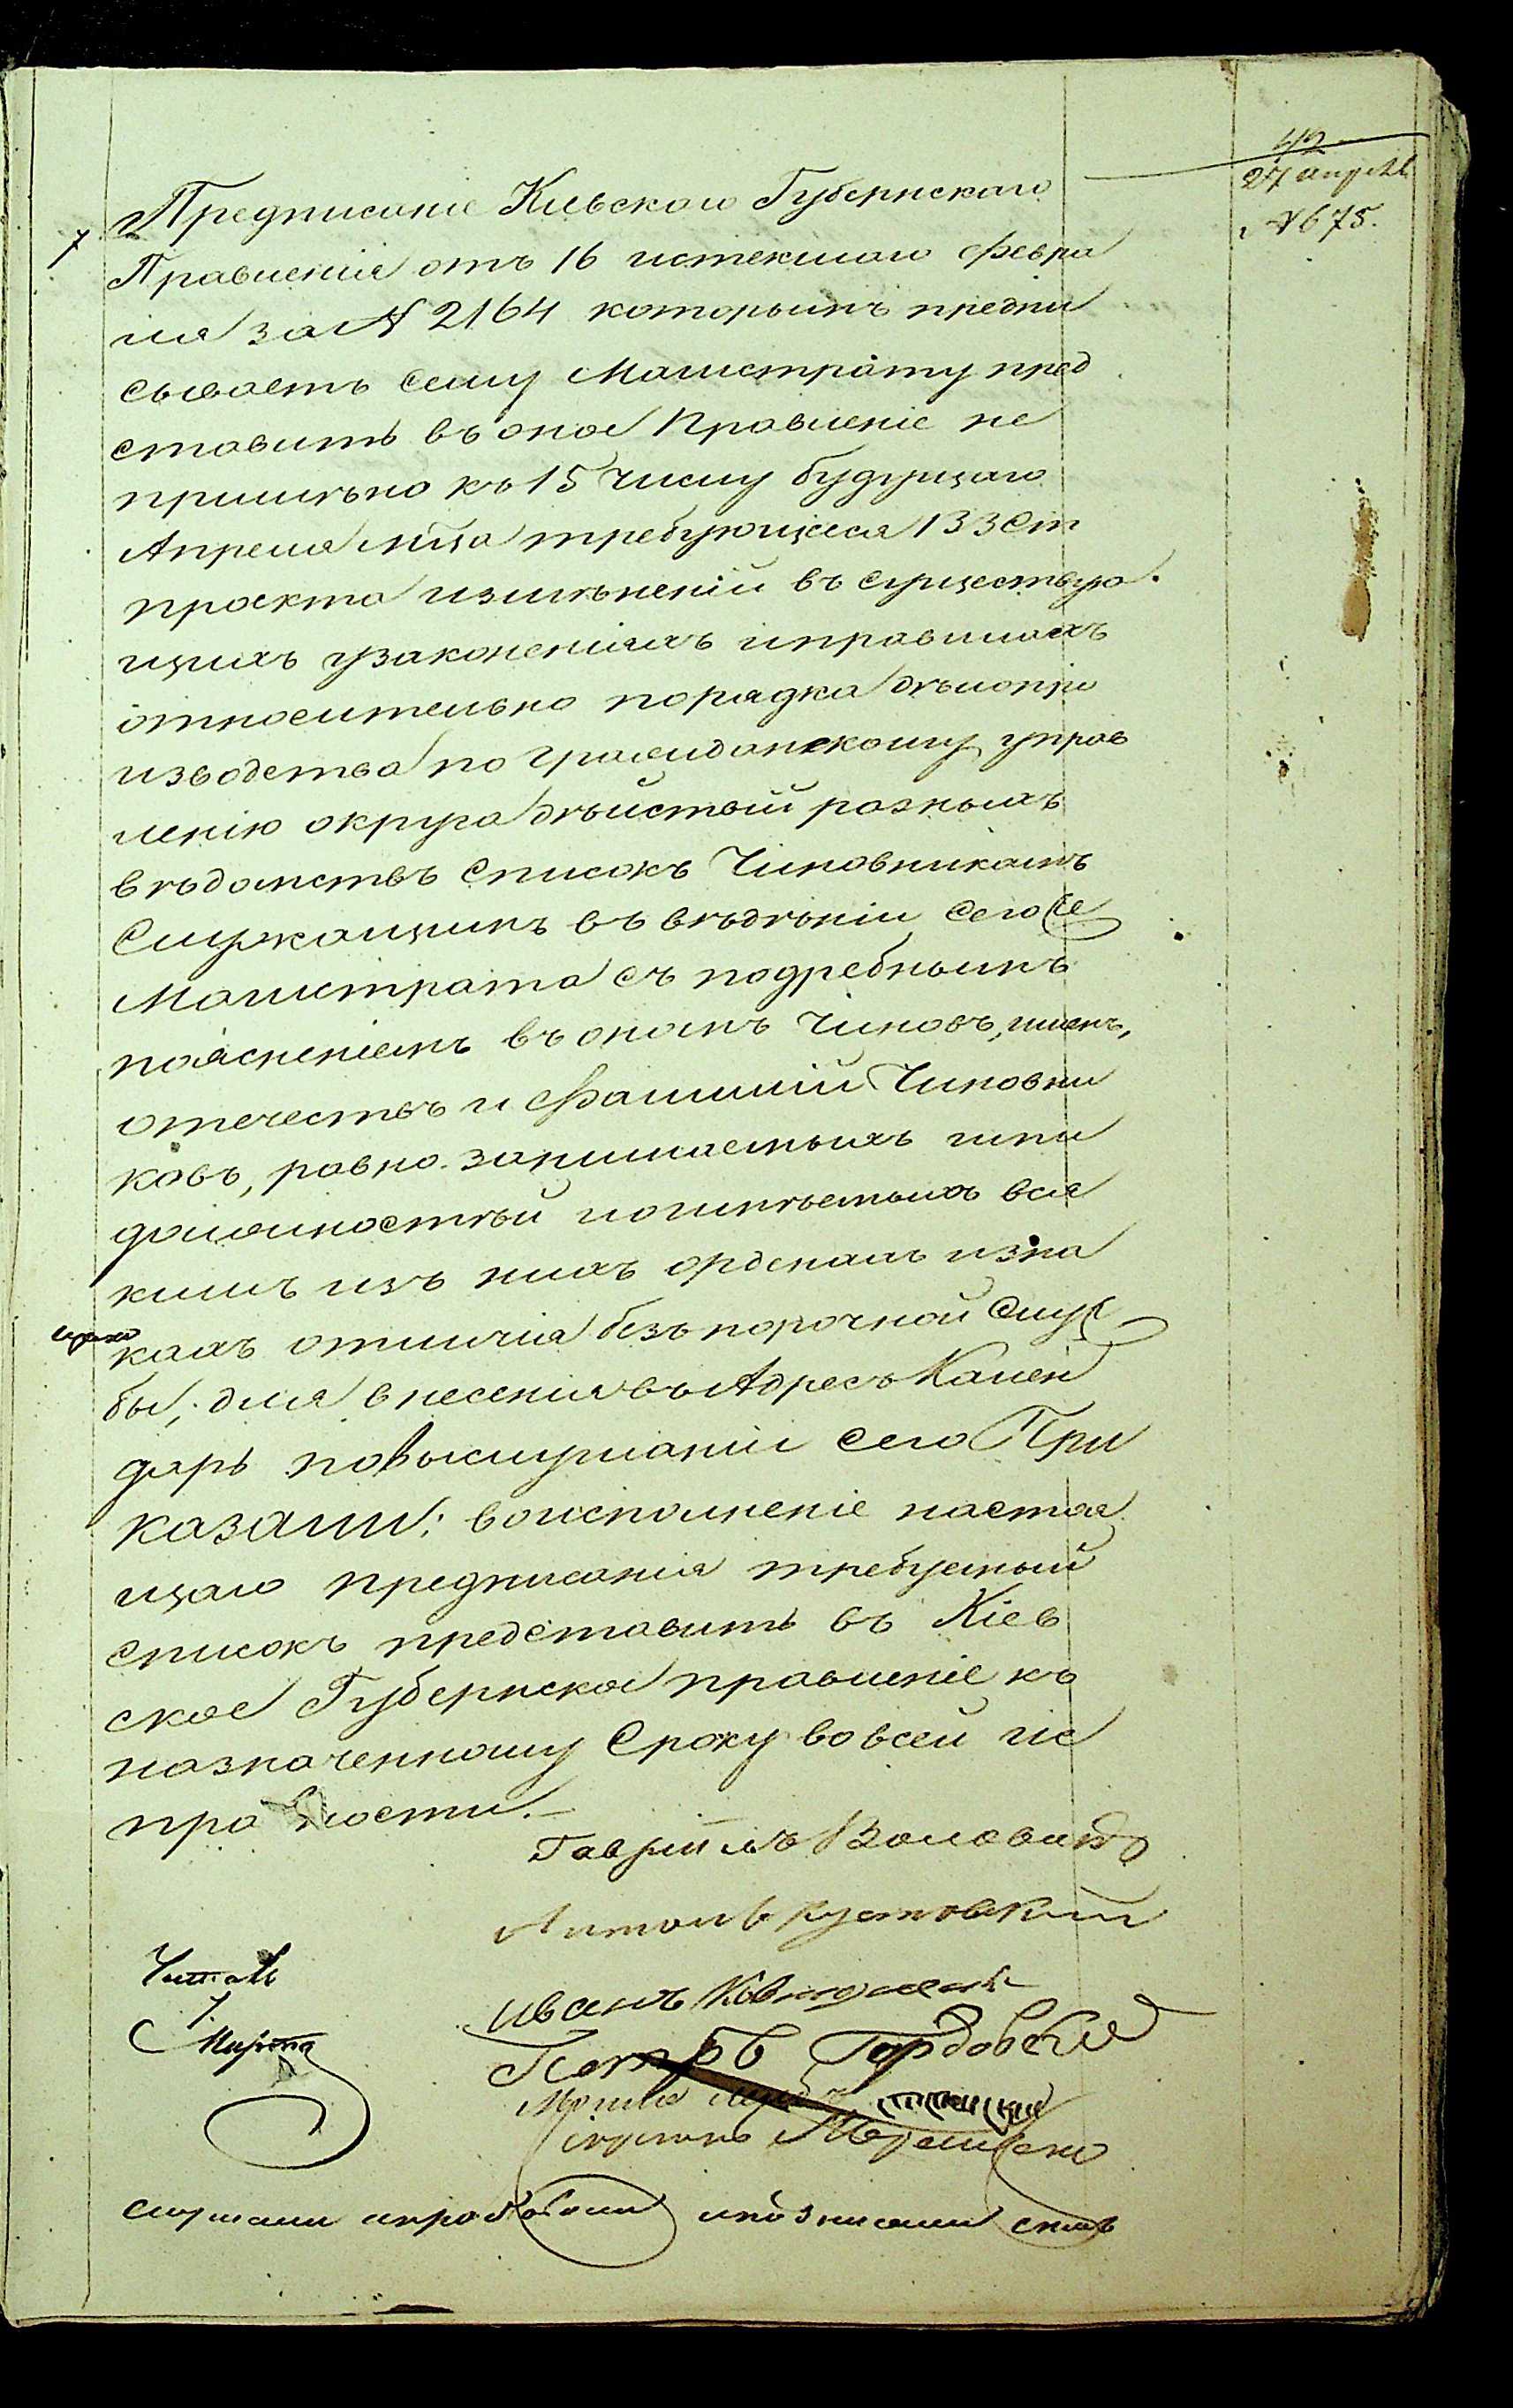 42
27 апреля
№ 675.
7
Предписаніе Кіевскаго Губернскаго
Правленія отъ 16 истекшаго Февра
ля за № 2164 которымъ предпи
сываетъ сему Магистрату пред
ставить въ оное Правленіе не
примѣнно къ 15 числу будущаго
Апреля мца требующеся 133 Ст
проекта измѣненій въ существую
щихъ узаконеніяхъ и правилахъ
относительно порядка дѣлопро
изводства по гражданскому управ
ленію округа дѣйствій разныхъ
вѣдомствъ списокъ Чиновникамъ
Служащимъ въ вѣдѣніи сего
Магистрата съ подребнымъ
поясненіемъ въ ономъ Чиновъ, именъ,
отечествъ и Фамилій Чиновни
ковъ, равно занимаемыхъ ими
должностѣй и о имѣемыхъ вся
кимъ изъ нихъ орденахъ и зна
кахъ отличія безъпорочной Служ
бы; для внесенія въ Адресъ Кален
дарь по выслушаніи сего При
казали: во исполненіе настоя
щаго предписанія требуемый
списокъ представить въ Кіев
ское Губернское правленіе къ
назначенному Сроку во всей ис
правности.
Гавріилъ
Читалъ
Иванъ
Петръ Гордовскій
слушали и подписали